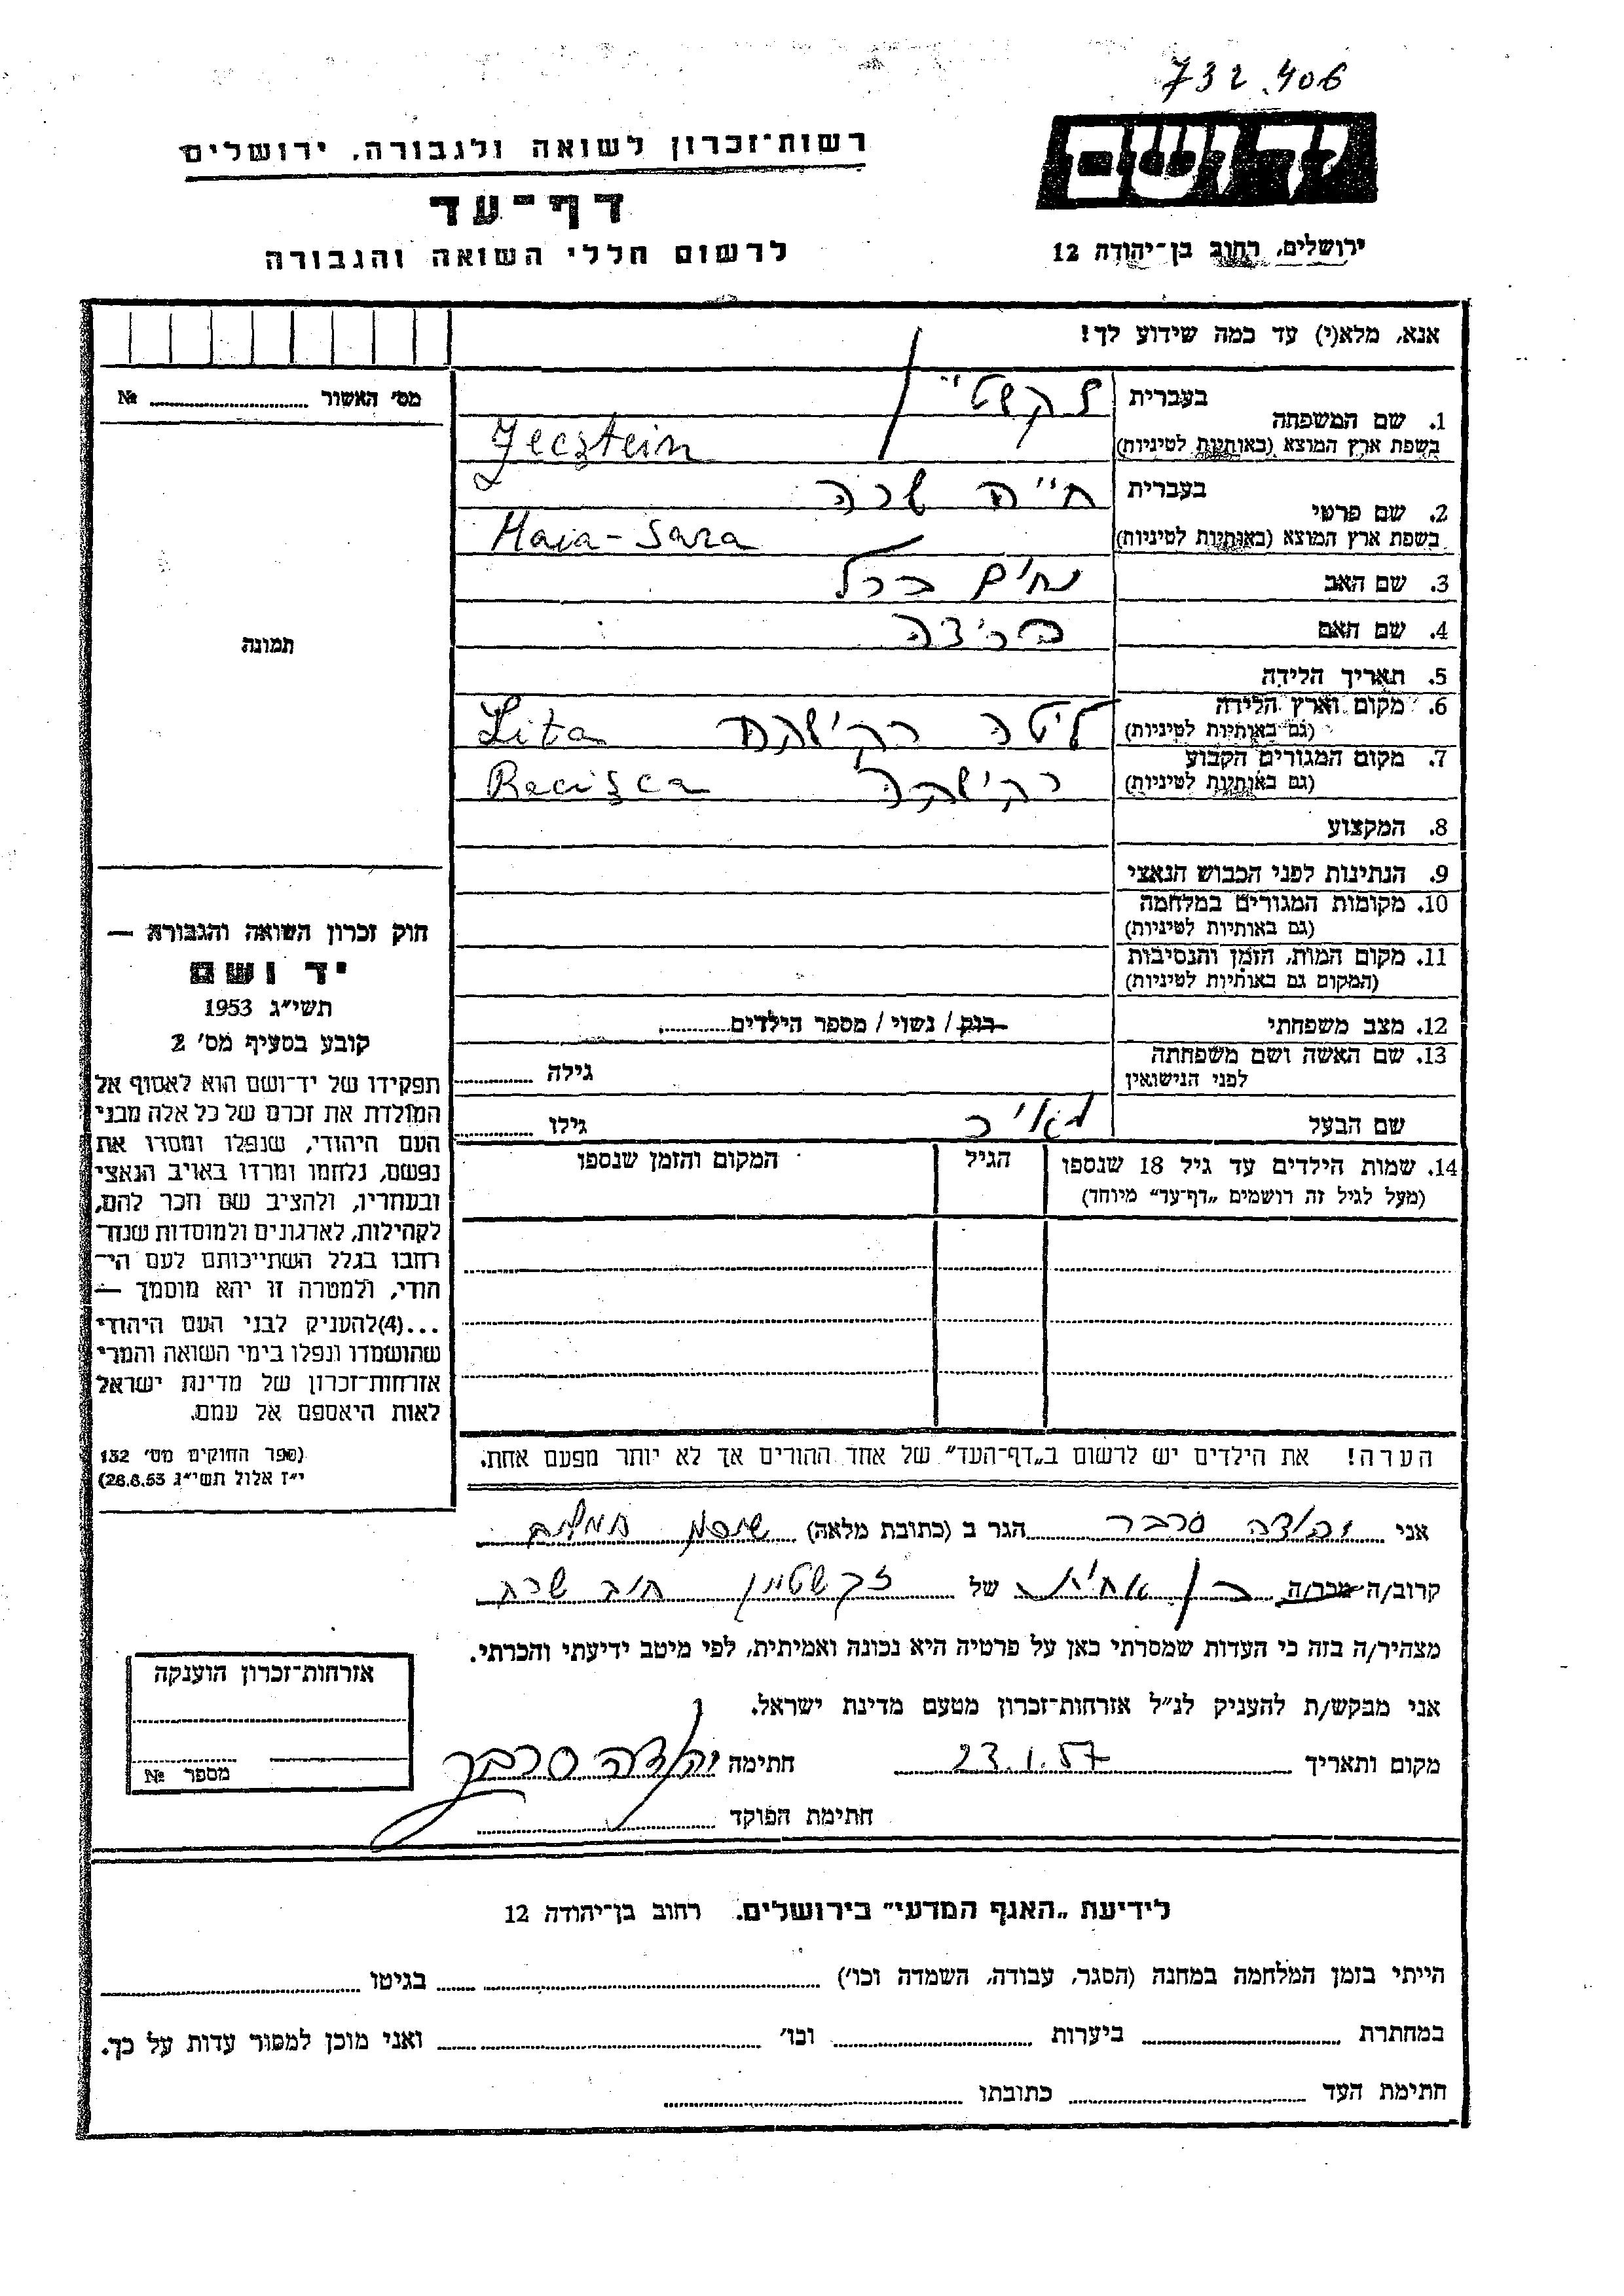 732.406
יד ושם
רשות־זכרון לשואה ולגבורה, ירושלים
דף־עד
לרשום חללי השואה והגבורה
ירושלים, רחוב בן־יהודה 12
אנא, מלא(י) עד כמה שידוע לך!
מס׳ האשור № ....................
1. שם המשפחה
בעברית
בשפת ארץ המוצא (באותיות לטיניות) Jecstein
2. שם פרטי
בעברית חייה שרה
בשפת ארץ המוצא (באותיות לטיניות) Haia-Sara
3. שם האב נחים ברל
4. שם האם
5. תאריך הלידה
6. מקום וארץ הלידה ליטה רקישקה Lita
(גם באותיות לטיניות)
7. מקום המגורים הקבוע רקישקה Racisca
(גם באותיות לטיניות)
8. המקצוע
9. הנתינות לפני הכבוש הנאצי
10. מקומות המגורים במלחמה
(גם באותיות לטיניות)
11. מקום המות, הזמן והנסיבות
(המקום גם באותיות לטיניות)
12. מצב משפחתי רוק / נשוי / מספר הילדים............
13. שם האשה ושם משפחתה
לפני הנישואין
גילה ............
שם הבעל
גילו ............
14. שמות הילדים עד גיל 18 שנספו
(מעל לגיל זה רושמים „דף־עד״ מיוחד)
הגיל
המקום והזמן שנספו
הערה! את הילדים יש לרשום ב„דף־העד״ של אחד ההורים אך לא יותר מפעם אחת.
תמונה
חוק זכרון השואה והגבורה —
יד ושם
תשי״ג 1953
קובע בסעיף מס׳ 2
תפקידו של יד־ושם הוא לאסוף אל
המולדת את זכרם של כל אלה מבני
העם היהודי, שנפלו ומסרו את
נפשם, נלחמו ומרדו באויב הנאצי
ובעוזריו, ולהציב שם וזכר להם,
לקהילות, לארגונים ולמוסדות שנח־
רבו בגלל השתייכותם לעם הי־
הודי, ולמטרה זו יהא מוסמך —
...(4)להעניק לבני העם היהודי
שהושמדו ונפלו בימי השואה והמרי
אזרחות־זכרון של מדינת ישראל
לאות היאספם אל עמם.
(ספר החוקים מס׳ 132
י״ז אלול תשי״ג 28.8.53)
אני יהודה פרבר הגר ב (כתובת מלאה)
קרוב/ה מכר/ה בן אחות של זקשטיין חיה שרה
מצהיר/ה בזה כי העדות שמסרתי כאן על פרטיה היא נכונה ואמיתית, לפי מיטב ידיעתי והכרתי.
אני מבקש/ת להעניק לנ״ל אזרחות־זכרון מטעם מדינת ישראל.
מקום ותאריך 23.1.57 חתימה יהודה פרבר
חתימת הפוקד
אזרחות־זכרון הוענקה
מספר №
לידיעת „האגף המדעי״ בירושלים. רחוב בן־יהודה 12
הייתי בזמן המלחמה במחנה (הסגר, עבודה, השמדה וכו׳) .................... בגיטו ....................
במחתרת .................... ביערות .................... וכו׳ .................... ואני מוכן למסור עדות על כך.
חתימת העד .................... כתובתו ....................